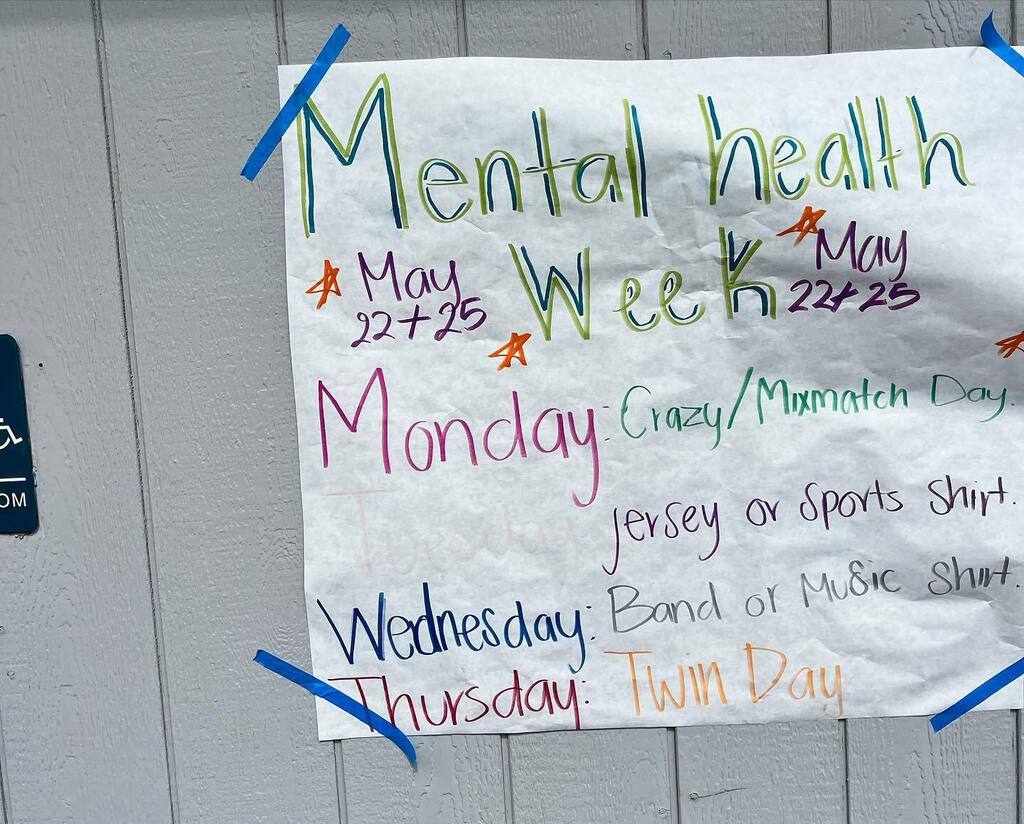 Mental health
May 22+25 Week May 22+25
Monday: Crazy/Mixmatch Day.
Tuesday: Jersey or Sports Shirt.
Wednesday: Band or Music Shirt.
Thursday: Twin Day
OM